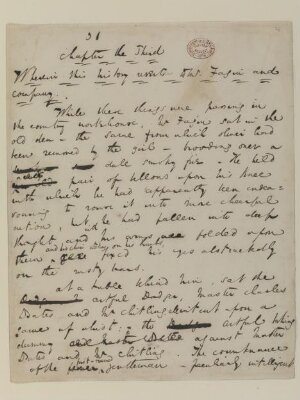 31
Chapter the Third
Wherein this history reverts to Mr Fagin and
company.
While these things were passing in
the country workhouse, Mr Fagin sat in the
old den – the same from which Oliver had
been removed by the girl – brooding over a
dull smoky fire. He held
a pair of bellows upon his knee
with which he had apparently been endea-
vouring to rouse it into more cheerful
action, but he had fallen into deep
thought, and
with his arms folded upon
them and his chin resting on his thumbs
fixed his eyes abstractedly
on the rusty bars.
At a table behind him, sat the
Artful Dodger, Master Charles
Bates and Mr Chitling intent upon a
game of whist; the Artful taking
dummy against Master
Bates and Mr Chitling. The countenance
of the first-named gentleman peculiarly intelligent